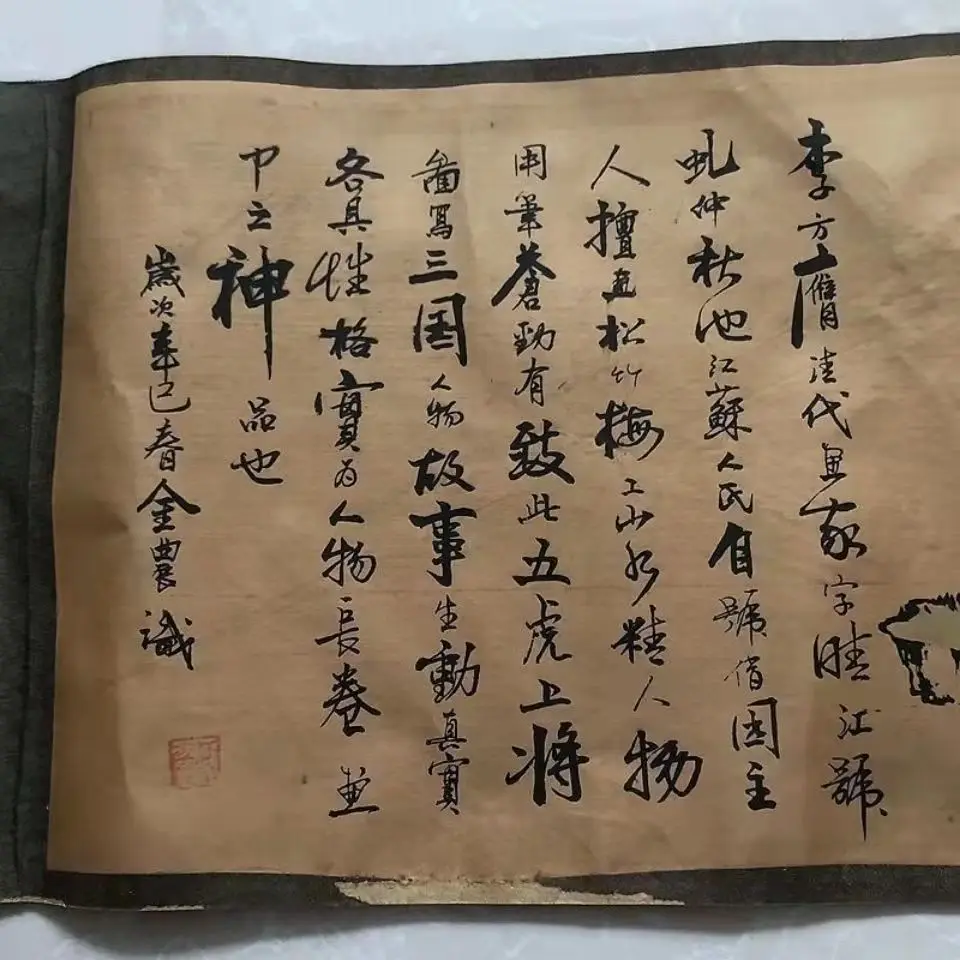 李方膺清代画家字晴江號
虬仲秋池江蘇人氏自號借园主
人擅画松竹梅工山水精人物
用筆蒼勁有致此五虎上将
啚寫三国人物故事生動真實
各具性格實为人物長卷画
中之神品也
歲次辛巳春金農識